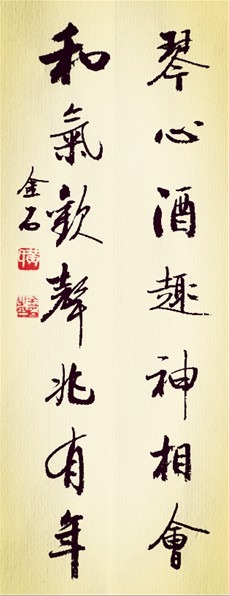 琴心酒趣神相會
和氣歡聲兆有年
金石